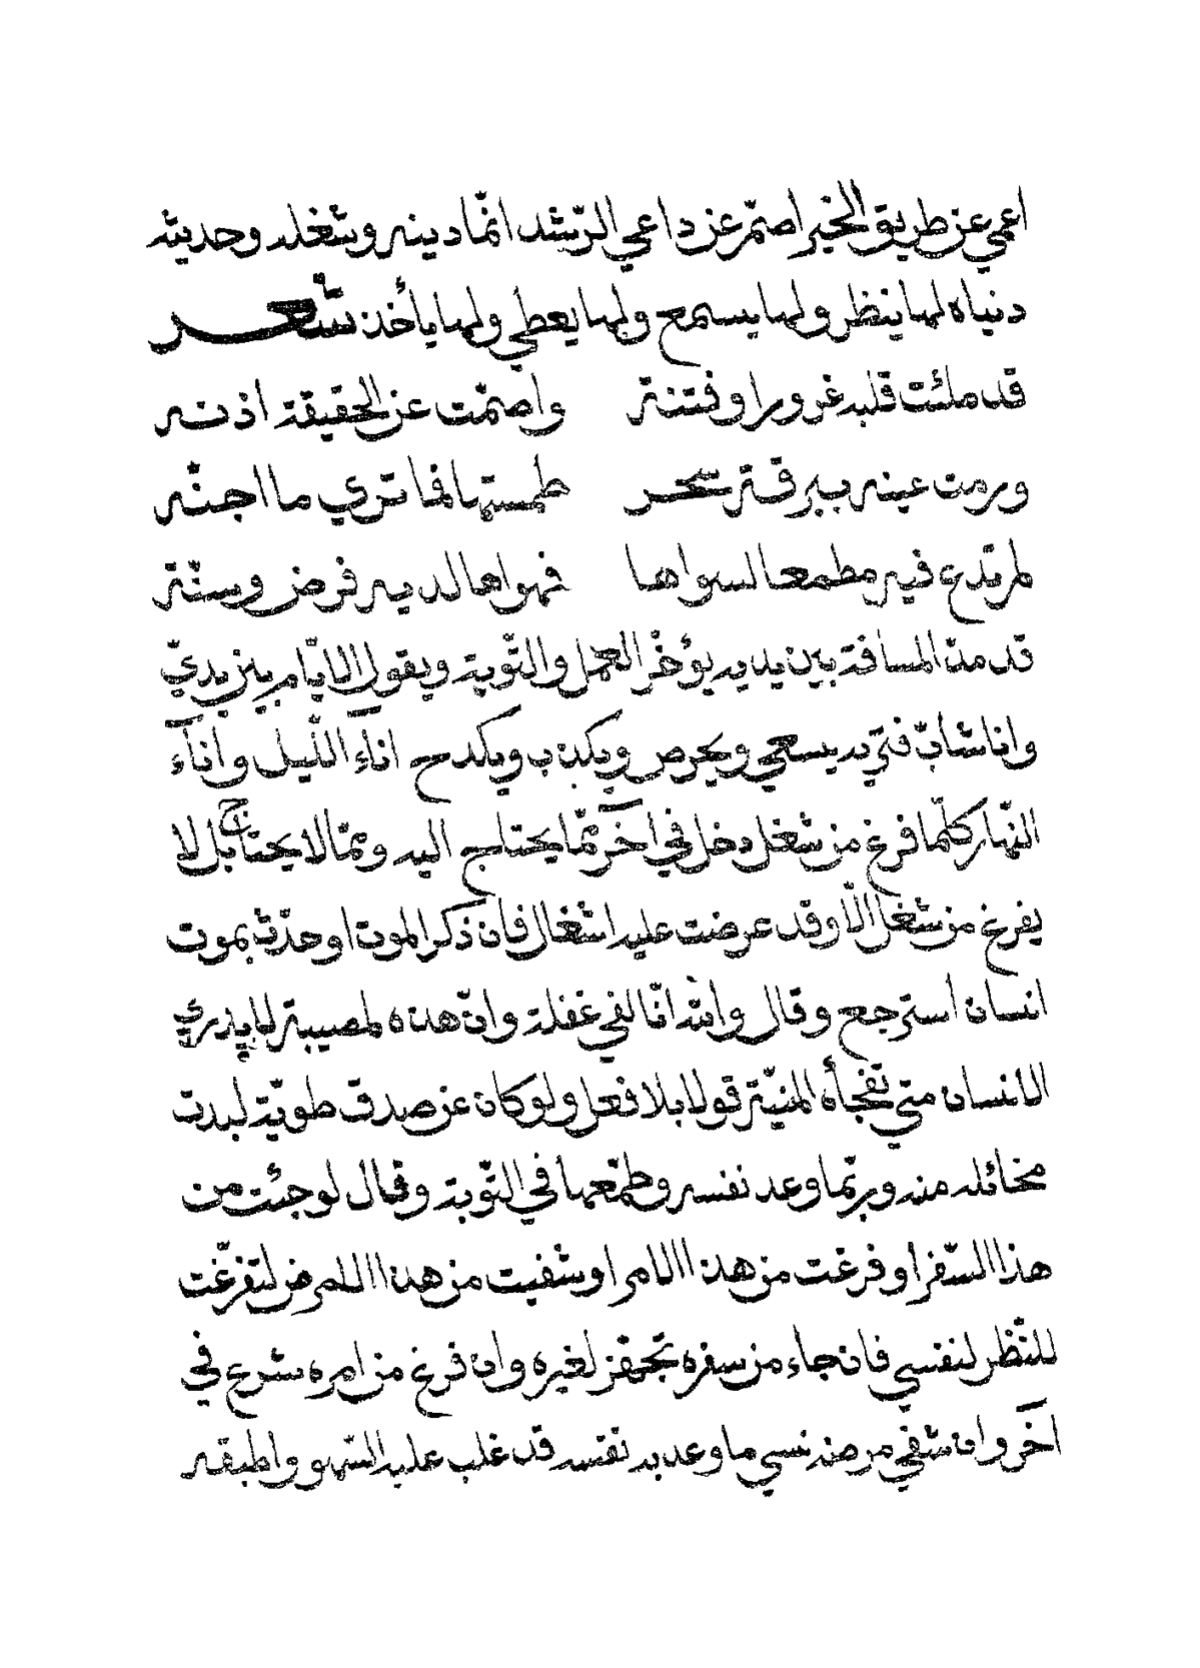 اعمي عن طريق الخير اصمّ عن داعي الرّشد انّما دينه وشغله وحديثه
دنياه لها ينظر ولها يسمع ولها يعطي ولها يأخذ شعر
قد ملئت قلبه غرورا وفتنة واصمّت عن الحقيقة اذنه
ورمت عينه ببرقة سحر طمستها فما تري ما اجنّه
لم تدع فيه مطمعا لسواها فهواها لديه فرض وسنّة
قد مدّ المسافة بين يديه يؤخّر العمل والتّوبة ويقول الايّام بين يديّ
وانا شابّ فتي يسعي ويحرص ويكذب ويكدح اناء اللّيل وآناء
النّهار كلّما فرغ من شغل دخل في آخر ممّا يحتاج اليه وممّا لا يحتاج بل لا
يفرغ من شغل الّا وقد عرضت عليه اشغال فان ذكر الموت او حدّث بموت
انسان أسترجع وقال والله انّا لفي غفلة وانّ هذه لمصيبة لا يدري
الانسان متي تفجأه المنيّة قولا بلا فعل ولو كان عن صدق طويّة لبدت
مخائله منه وربّما وعد نفسه وطمّعها في التّوبة وقال لو جئت من
هذا السّفر او فرغت من هذا الامر او شفيت من هذا المرض لتفرّغت
للنّظر لنفسي فان جاء من سفره تجهّز لغيره وان فرغ من امره شرع في
آخر وان شفي مرضه نسي ما وعد به نفسه قد غلب عليه السّهو واطبقه